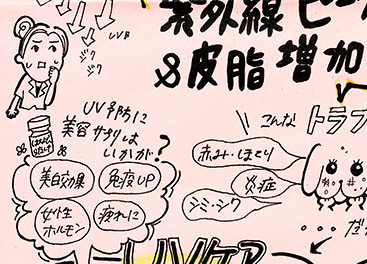 紫外線ピー
&皮脂増加
UVB
ジク
ジク
UV予防に
美容サプリは
いかが?
美白効果
免疫UP
女性
ホルモン
疲れに
こんな トラブ
赤み・ほてり
炎症
シミ・シワ
UVケア